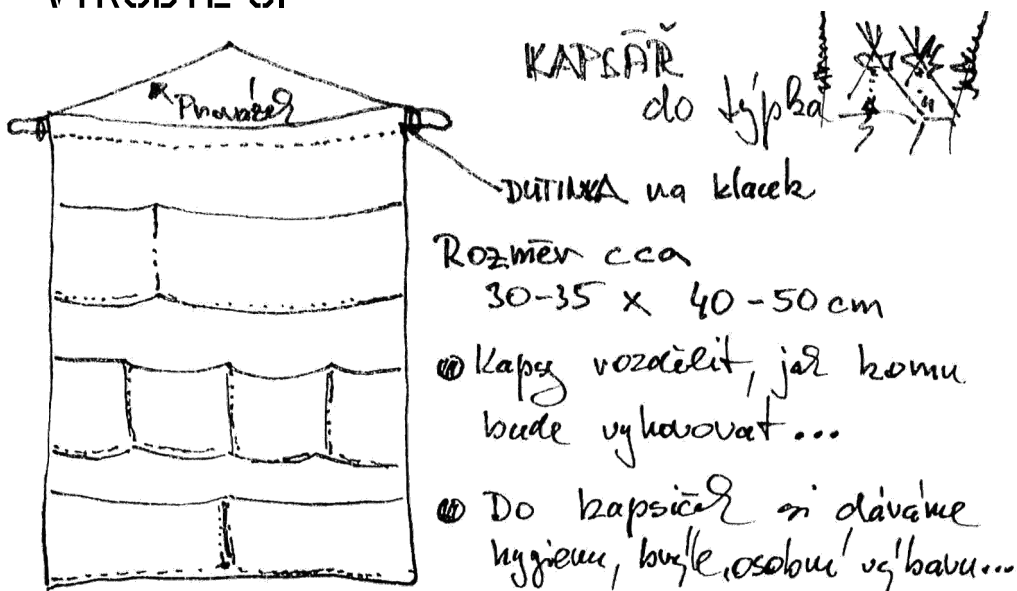 VYROBTE SI
KAPSÁŘ
do týpka
Provázek
DUTINKA na klacek
Rozměr cca
30-35 x 40-50 cm
Kapsy rozdělit, jak komu
bude vyhovovat...
Do kapsiček si dáváme
hygienu, brýle, osobní výbavu...